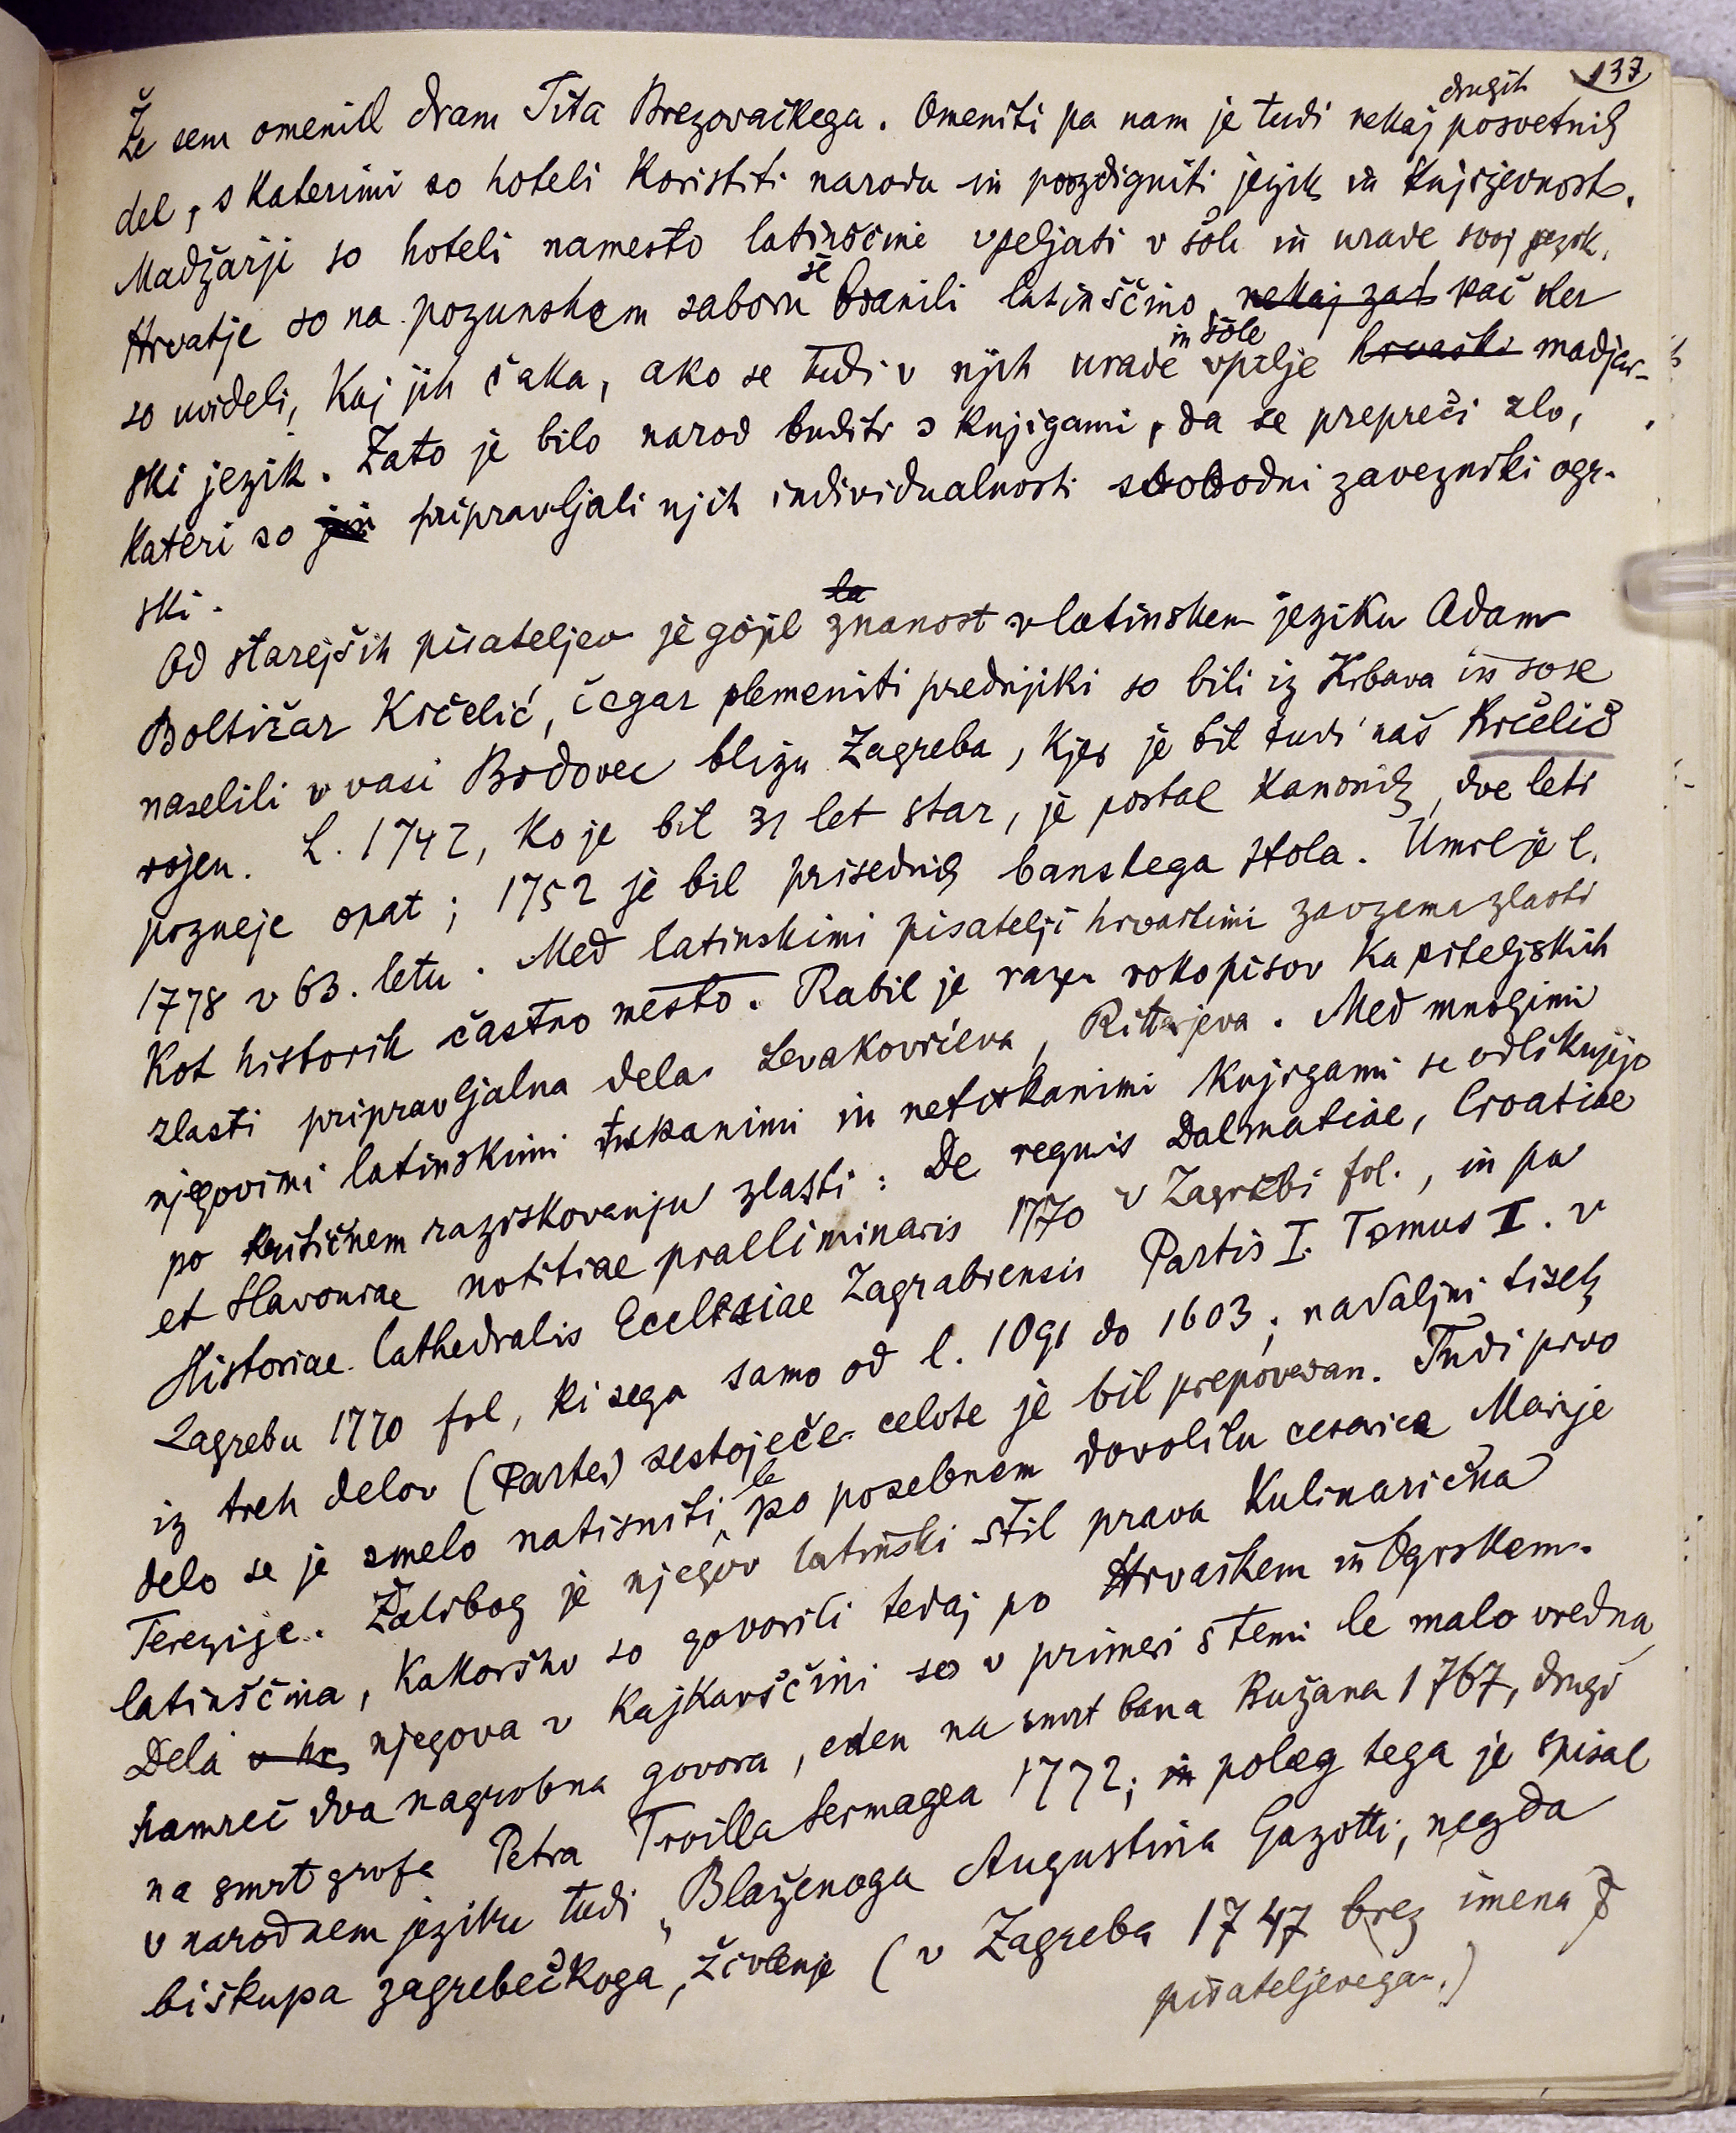 137
Že sem omenil dram Tita Brezovačkega. Omeniti pa nam je tudi nekaj drugih posvetnih
del, s katerimi so hoteli koristiti narodu in povzdigniti jezik in književnost.
Madžarji so hoteli namesto latinščine vpeljati v šole in urade svoj jezik.
Hrvatje so na pozunskem saboru še branili latinščino, nekaj zat kač ker
so uvideli, kaj jih čaka, ako se tudi v njih urade in šole vpelje hrvaški madjar-
ski jezik. Zato je bilo narod buditi s knjigami, da se prepreči zlo,
kateri so jim pripravljali njih individualnosti slobodni zavezniki ogr-
ski.
Od starejših pisateljev je gojil la znanost v latinskem jeziku Adam
Boltižar Krčelić, čegar plemeniti prednjiki so bili iz Krbava in so se
naselili v vasi Brdovec blizu Zagreba, kjer je bil tudi naš Krčelić
rojen. L. 1742, ko je bil 31 let star, je postal kanonik, dve leti
pozneje opat; 1752 je bil prisednik banskega stola. Umrl je l.
1778 v 63. letu. Med latinskimi pisatelji hrvaškimi zavzema zlasti
kot historik častno mesto. Rabil je razen rokopisov kapiteljskih
zlasti pripravljalna dela Levakovićeva, Ritterjeva. Med mnogimi
njegovimi latinskimi tiskanimi in netiskanimi knjigami se odlikujejo
po kritičnem raziskovanju zlasti: De regnis Dalmatiae, Croatiae
et Slavoniae notitiae praelliminaris 1770 v Zagrebi fol., in pa
Historiae Cathedralis Ecclesiae Zagrabiensis Partis I. Tomus I. v
Zagrebu 1770 fol, ki sega samo od l. 1091 do 1603; nadaljni tisek
iz treh delov (Partes) sestoječe celote je bil prepovedan. Tudi prvo
delo se je smelo natisniti le po posebnem dovolilu cesarice Marije
Terezije. Žalibog je njegov latinski stil prava kulinarična
latinščina, kakoršno so govorili tedaj po Hrvaškem in Ogrskem.
Dela v hr njegova v kajkavščini so v primeri s temi le malo vredna,
namreč dva nagrobna govora, eden na smrt bana Bužana 1767, drugi
na smrt grofa Petra Troilla Sermagea 1772; in poleg tega je spisal
v narodnem jeziku tudi „Blaženoga Augustina Gazotti, negda
biškupa zagrebečkoga, živlenje (v Zagreba 1747 brez imena
pisateljevega.)